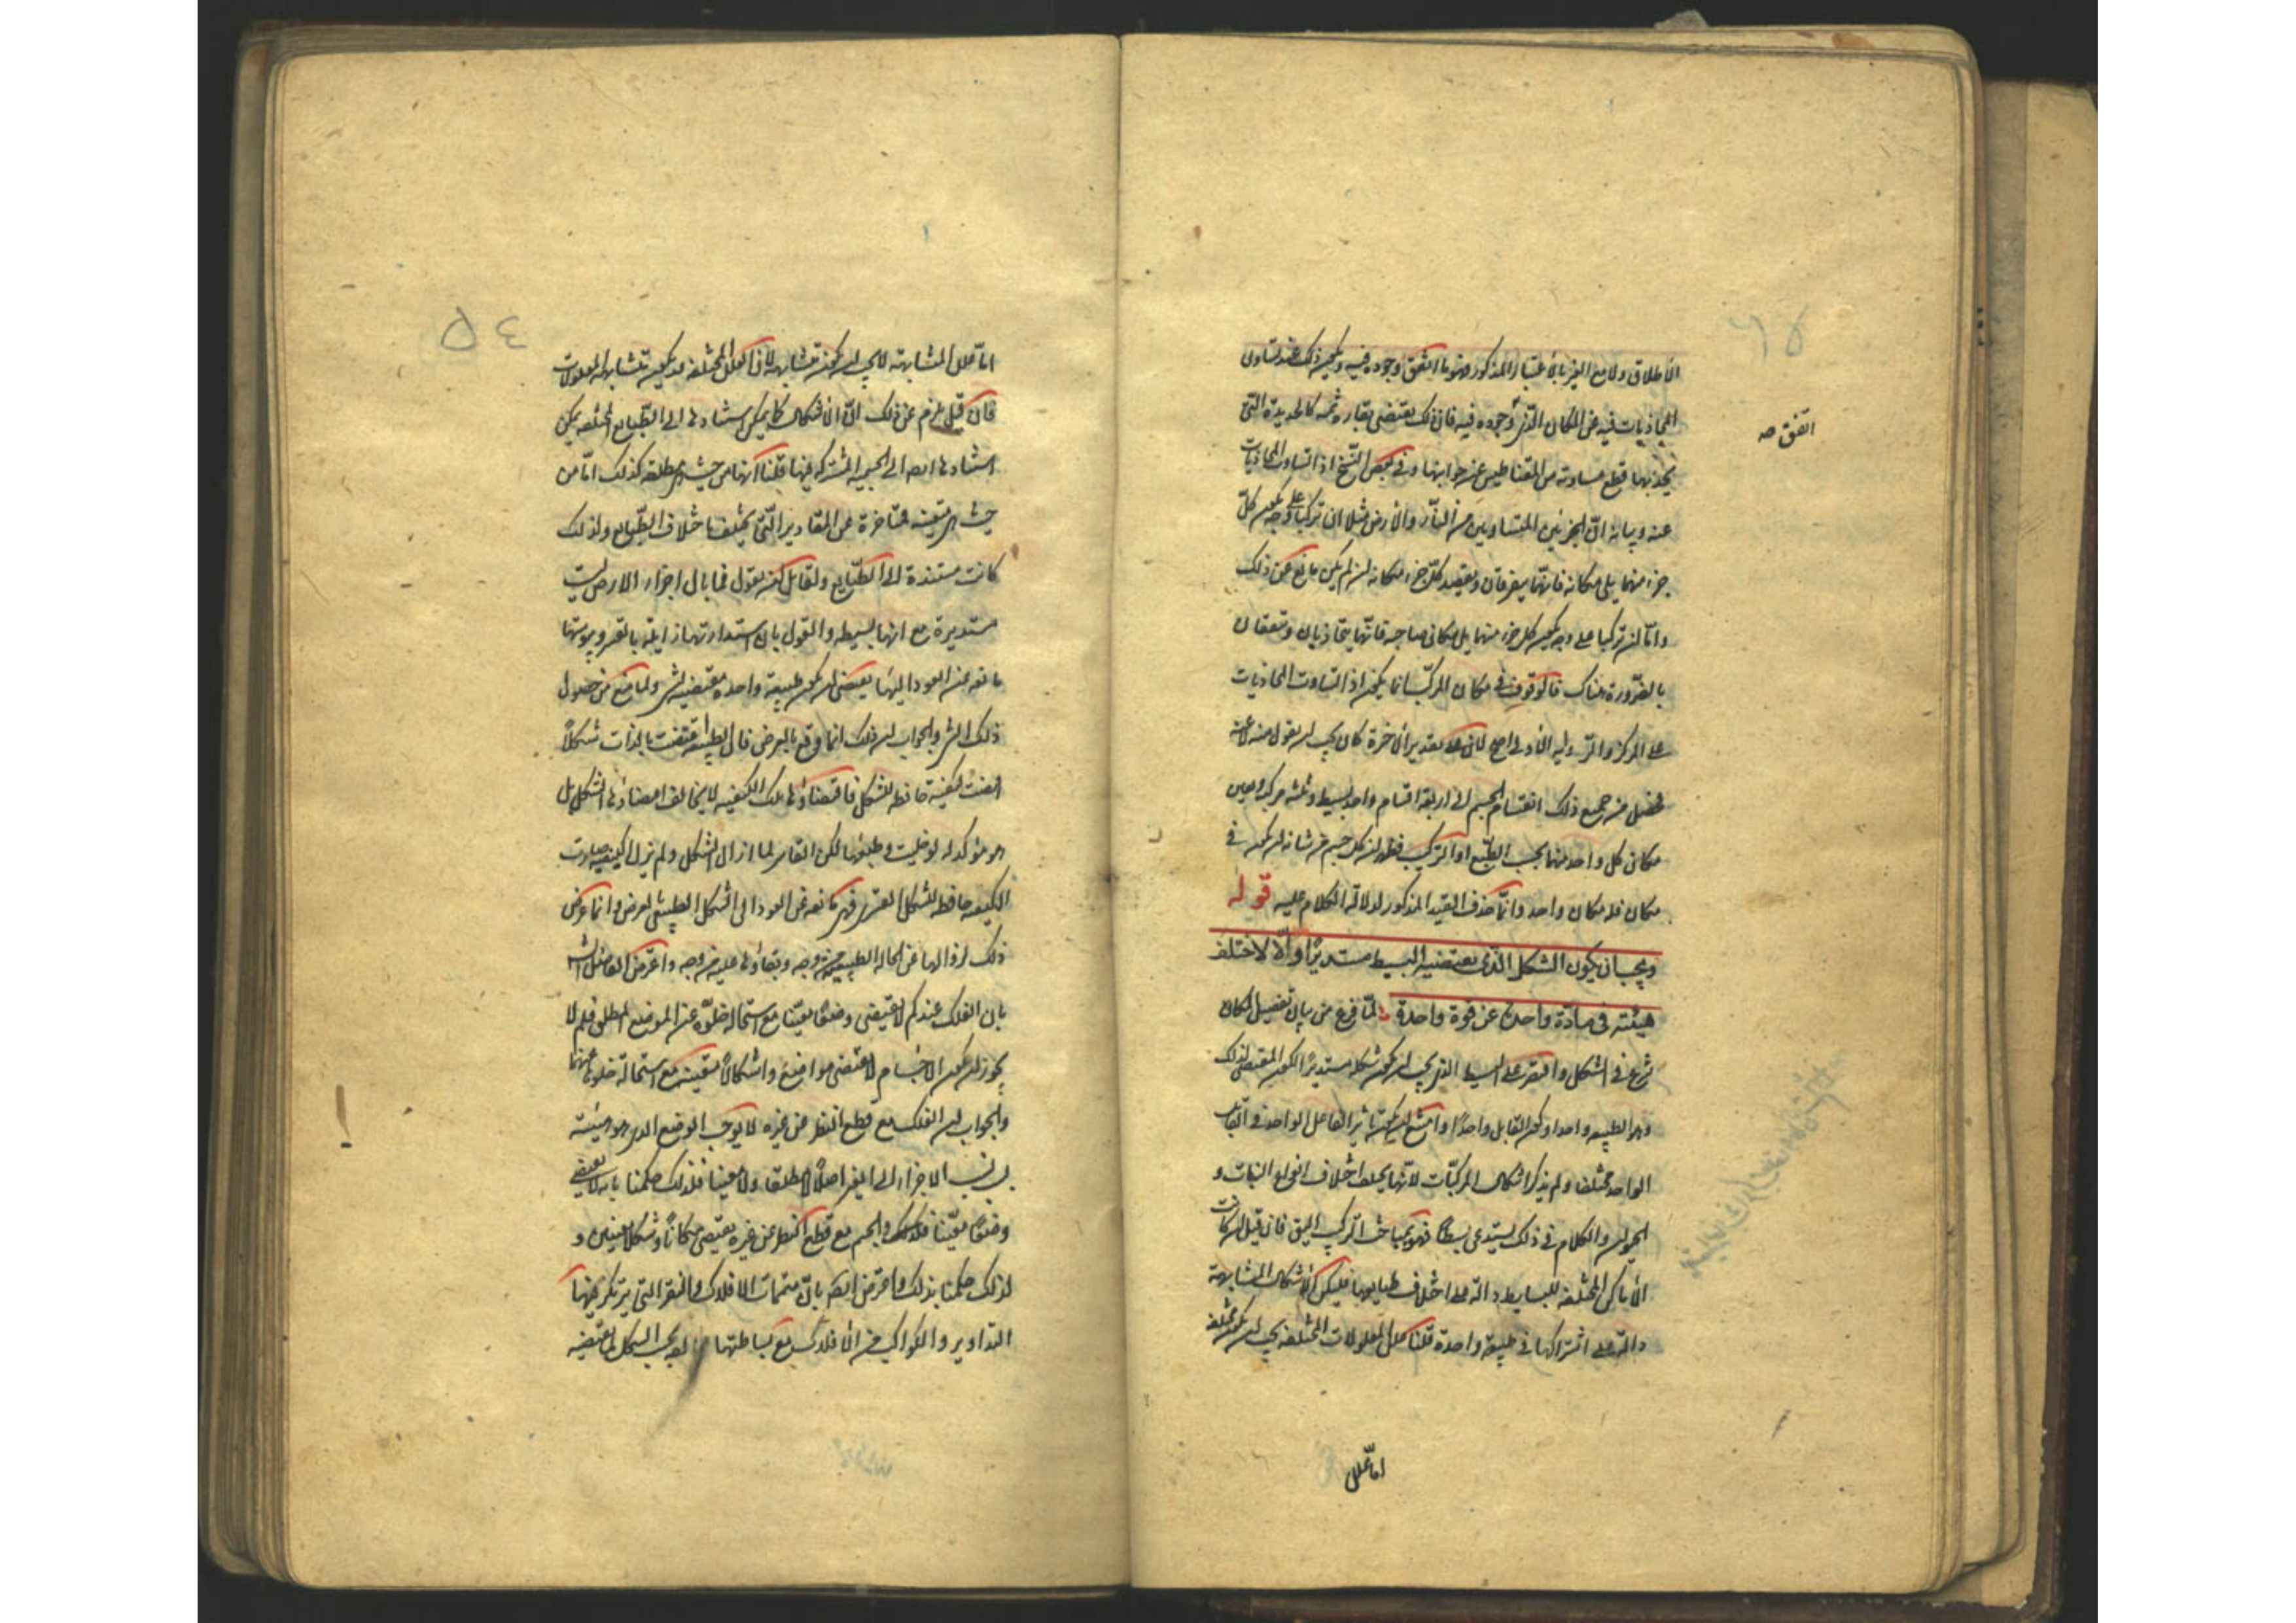 الاطلاق ولا مع الغير بالاعتبار المذكور فهو ما اتفق وجوده فيه ويكون ذلك عند تساوى
المجاذبات فيه عن المكان الذى وجوده فيه فان ذلك يقتضى بقاره ثمه كالحديدة التى
يجذبها قطع متساوية من المقناطيس عن جوانبها وفى بعض النسخ اذا تساوت المجاذبات
عنه وبيانه ان الجزئين المتساويين من النار والارض مثلا ان تركبا على وجه يكون كل
جزء منهما يلى مكانه فانهما يفترقان ويقصد كل جزء مكانه ان لم يكن مانع عن ذلك
واما ان تركبا على وجه يكون كل جزء منهما يلى مكان صاحبه فانهما يتجاذبان ويتعقان
بالضرورة هناك فالوقوف فى مكان المركب انما يكون اذا تساوت المجاذبات
على المركز والرواية الاولى اصح لان على تقدير الاخرة كان يجب ان يقول منه لا عنه
فحصل من جميع ذلك انقسام الجسم الى اربعة اقسام واحد بسيط وثلثه مركبة وتعين
مكان كل واحد منها بحسب الطبع او التركيب فظهر ان كل جسم من شانه ان يكون فى
مكان فله مكان واحد وانما حذف القيد المذكور لدلالة الكلام عليه قوله
ويجب ان يكون الشكل الذى يقتضيه البسيط مستديرا والا لاختلف
هيئته فى مادة واحدة عن قوة واحدة لما فرغ من بيان تفصيل المكان
شرع فى الشكل واقتصر على البسيط الذى يجب ان يكون شكله مستديرا لكون المقتضى لذلك
وهو الطبيعه واحدا وكون القابل واحدا وامتنع ان يكون تاثير الفاعل الواحد فى القابل
الواحد مختلفا ولم يذكر اشكال المركبات لانها يختلف اختلاف انواع النبات و
الحيوان والكلام فى ذلك يستدعى بسطا فهو بمباحث التركيب اليق فان قيل ان كانت
الاماكن المختلفه للبسايط دالة على اختلاف طبايعها فليكن الاشكال المتشابهة
دالة على اشتراكها فى طبيعة واحدة قلنا علل المعلولات المختلفه يجب ان يكون مختلفه
اما علل
اتفق صه
٥٤
اما علل المتشابهة لا يجب ان يكون متشابهة لان العلل المختلفه قد يكون متشابهة المعلولات
فان قيل يلزم عن ذلك ان الاشكال كما يمكن استنادها الى الطبايع المختلفه يمكن
استنادها ايضا الى الجسمية المشتركه فيها قلنا انها من حيث هى مطلقه كذلك اما من
حيث هى متعينه متاخرة عن المقادير التى يختلف باختلاف الطبايع ولذلك
كانت مستندة الى الطبايع ولقايل ان يقول فما بال اجزاء الارض ليست
مستديرة مع انها بسيطه والقول بان استدارتها زايلة بالقسر ويبوستها
مانعه عن العود اليها يقتضى ان يكون طبيعة واحدة مقتضيه لشىء ولما يمنع عن حصول
ذلك الشىء والجواب ان ذلك انما وقع بالعرض فان الطبيعة اقتضت بالذات شكلا
اقتضت كيفية حافظه للشكل فاقتضاؤها تلك الكيفيه لا يخالف اقتضاءها الشكل بل
هو مؤكد له لو خليت وطبعها لكن القاسر لما ازال الشكل ولم يزل الكيفيه صارت
الكيفيه حافظه للشكل القسرى فهى مانعه عن العود الى الشكل الطبيعى بالعرض وانما عرض
ذلك لزوالها عن الحالة الطبيعيه من وجه وبقاؤها عليه من وجه واعترض الفاضل الشارح
بان الفلك عندكم لا يقتضى وضعا معينا مع استحالة خلوه عن الوضع المطلق فلم لا
يجوز ان يكون الاجسام لا يقتضى مواضع واشكالا معينه مع استحالة خلوها عنها
والجواب ان الفلك مع قطع النظر عن غيره لا يوجب الوضع الذى هو هيئته
نسب الاجزاء الى الغير اصلا لا مطلقا ولا معينا فلذلك حكمنا بانه لا يقتضى
وضعا معينا والجسم مع قطع النظر عن غيره يقتضى مكانا وشكلا معينين و
لذلك حكمنا بذلك واعترض ايضا بان متممات الافلاك والنقر التى يرتكز فيها
التداوير والكواكب من الافلاك مع بساطتها الشكل يقتضيه